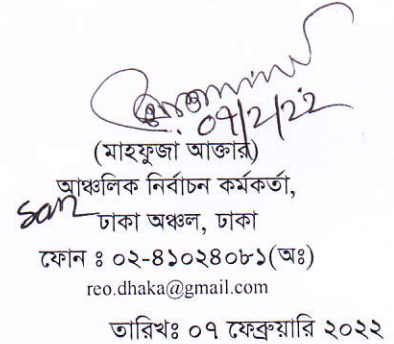 ০৭/2/22
(মাহফুজা আক্তার)
আঞ্চলিক নির্বাচন কর্মকর্তা,
ঢাকা অঞ্চল, ঢাকা
ফোন ঃ ০২-৪১০২৪০৮১(অঃ)
reo.dhaka@gmail.com
তারিখঃ ০৭ ফেব্রুয়ারি ২০২২